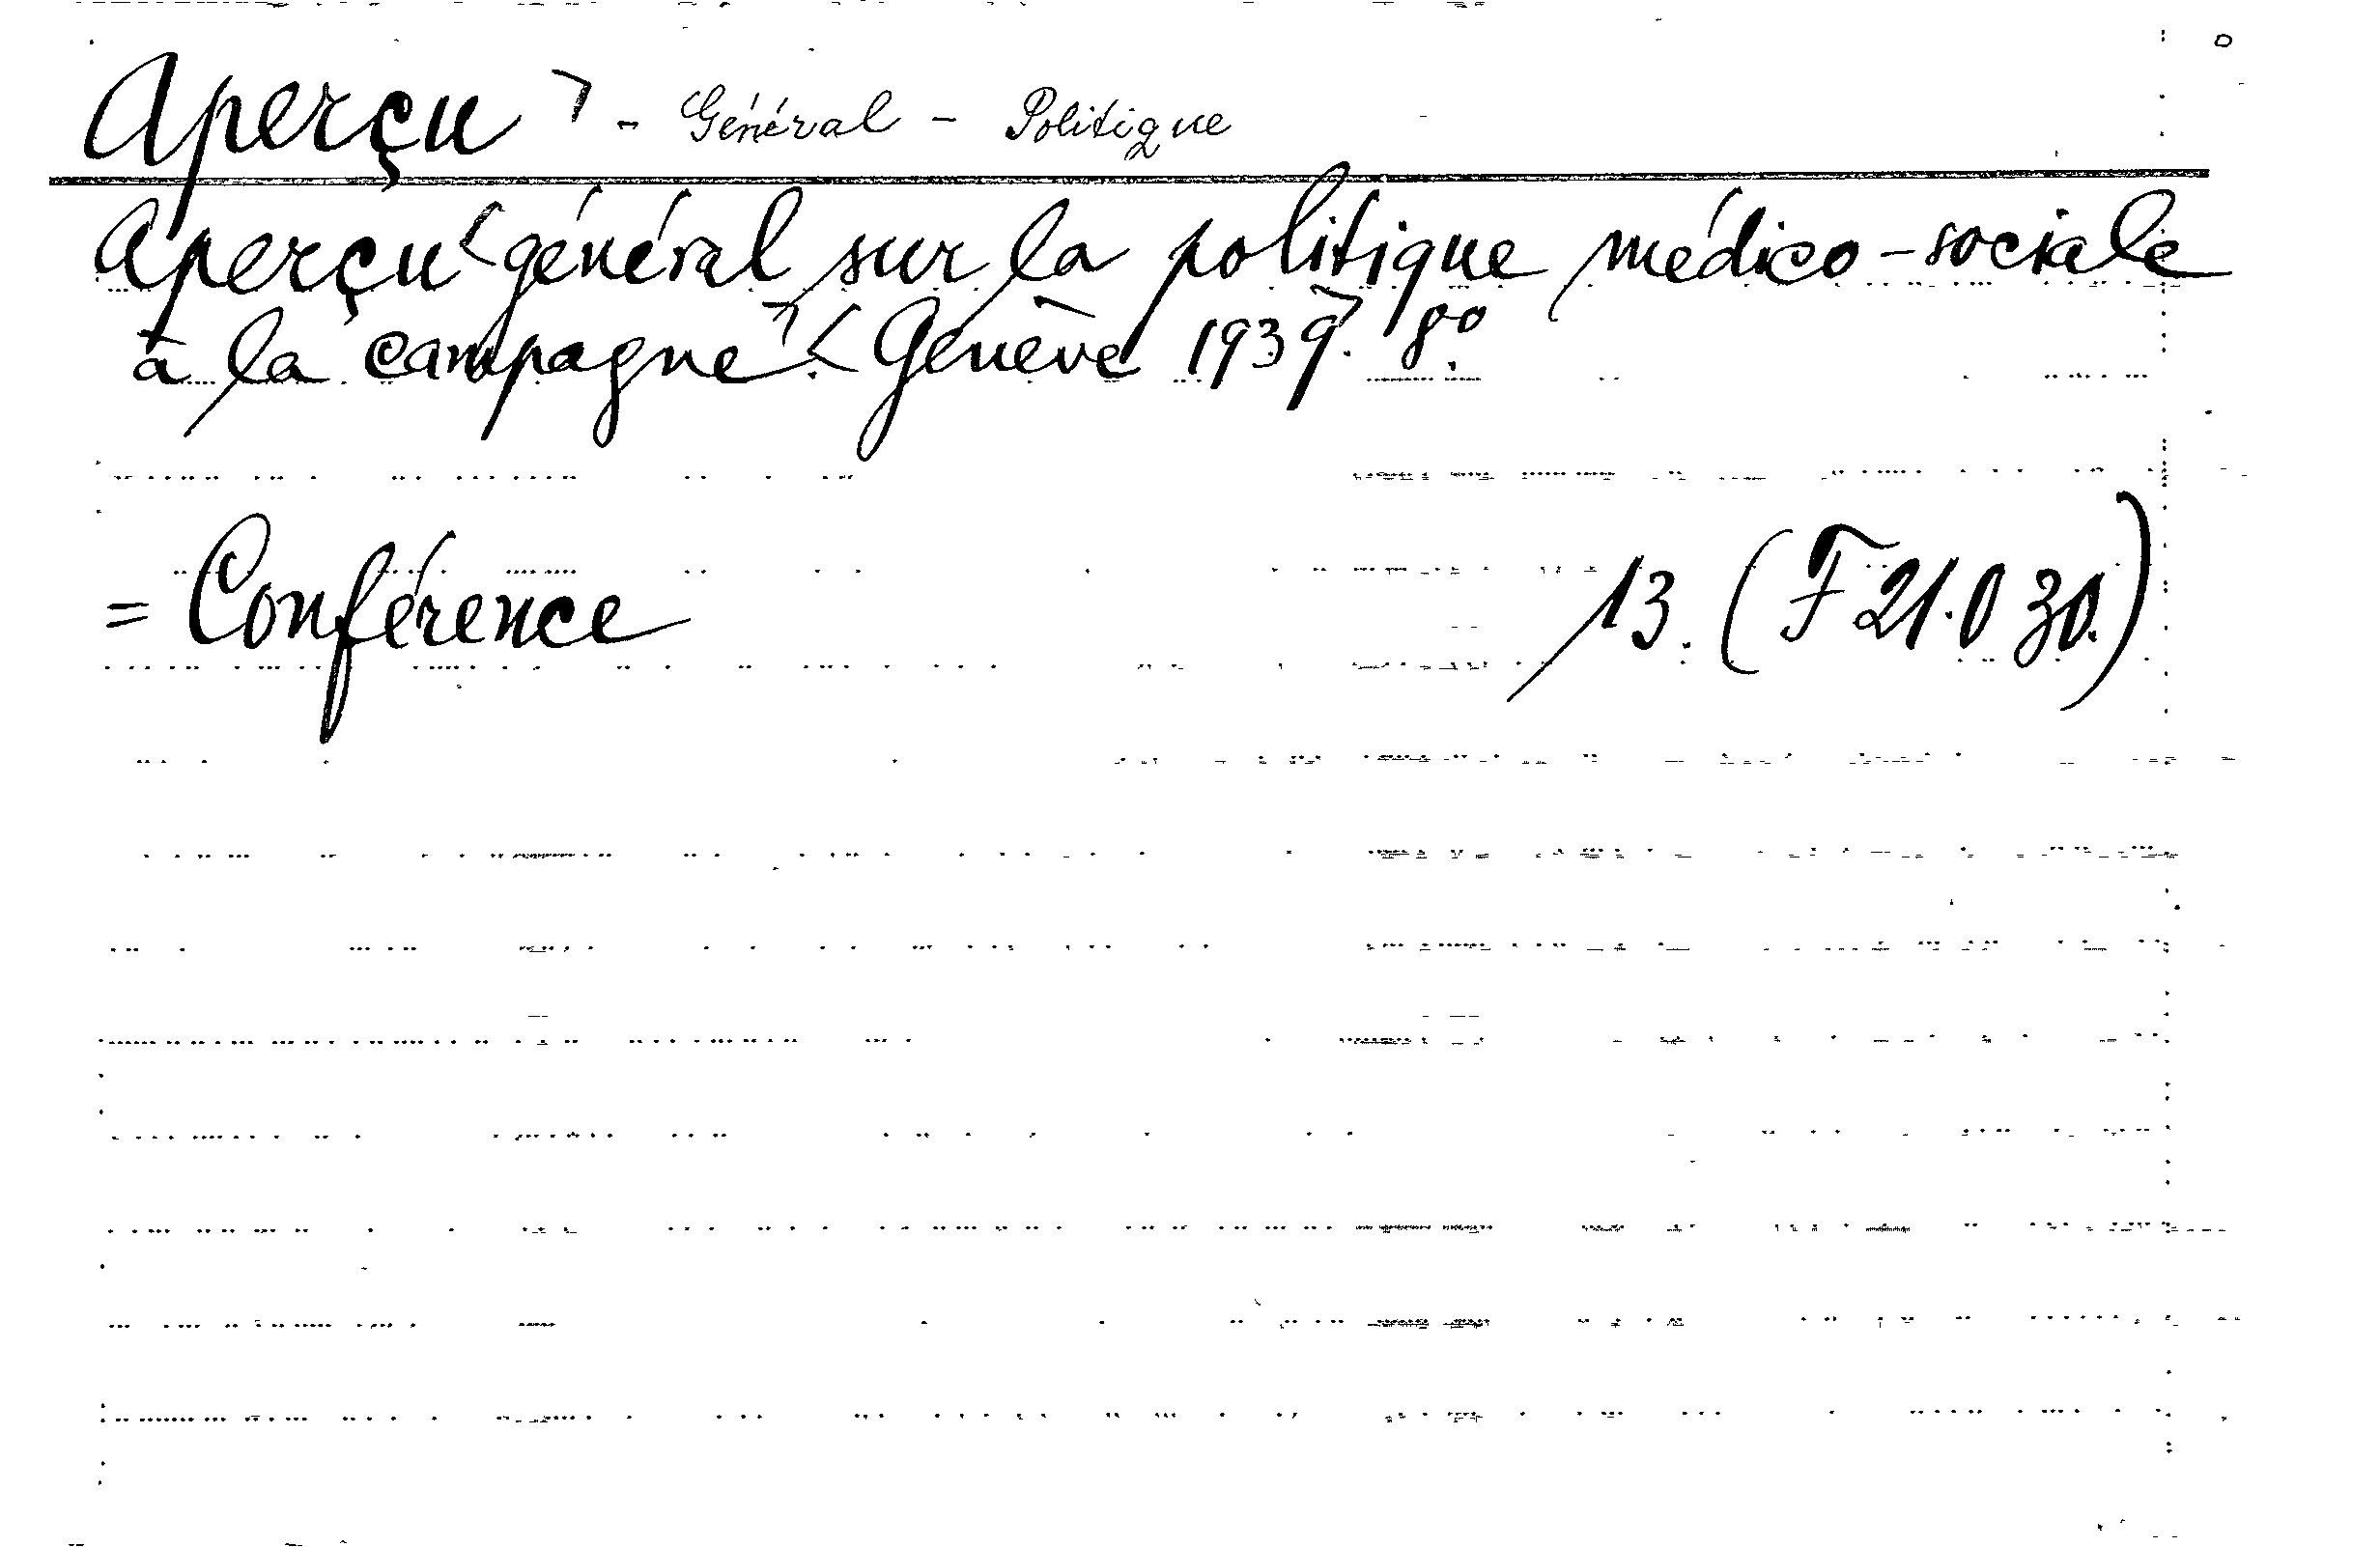 Aperçu ⁊ - Général - Politique
Aperçu < général sur la politique médico-sociale
à la campagne ⁊. < Genève 1939 ⁊. 8º.
= Conférence 13. (F 21.030.)